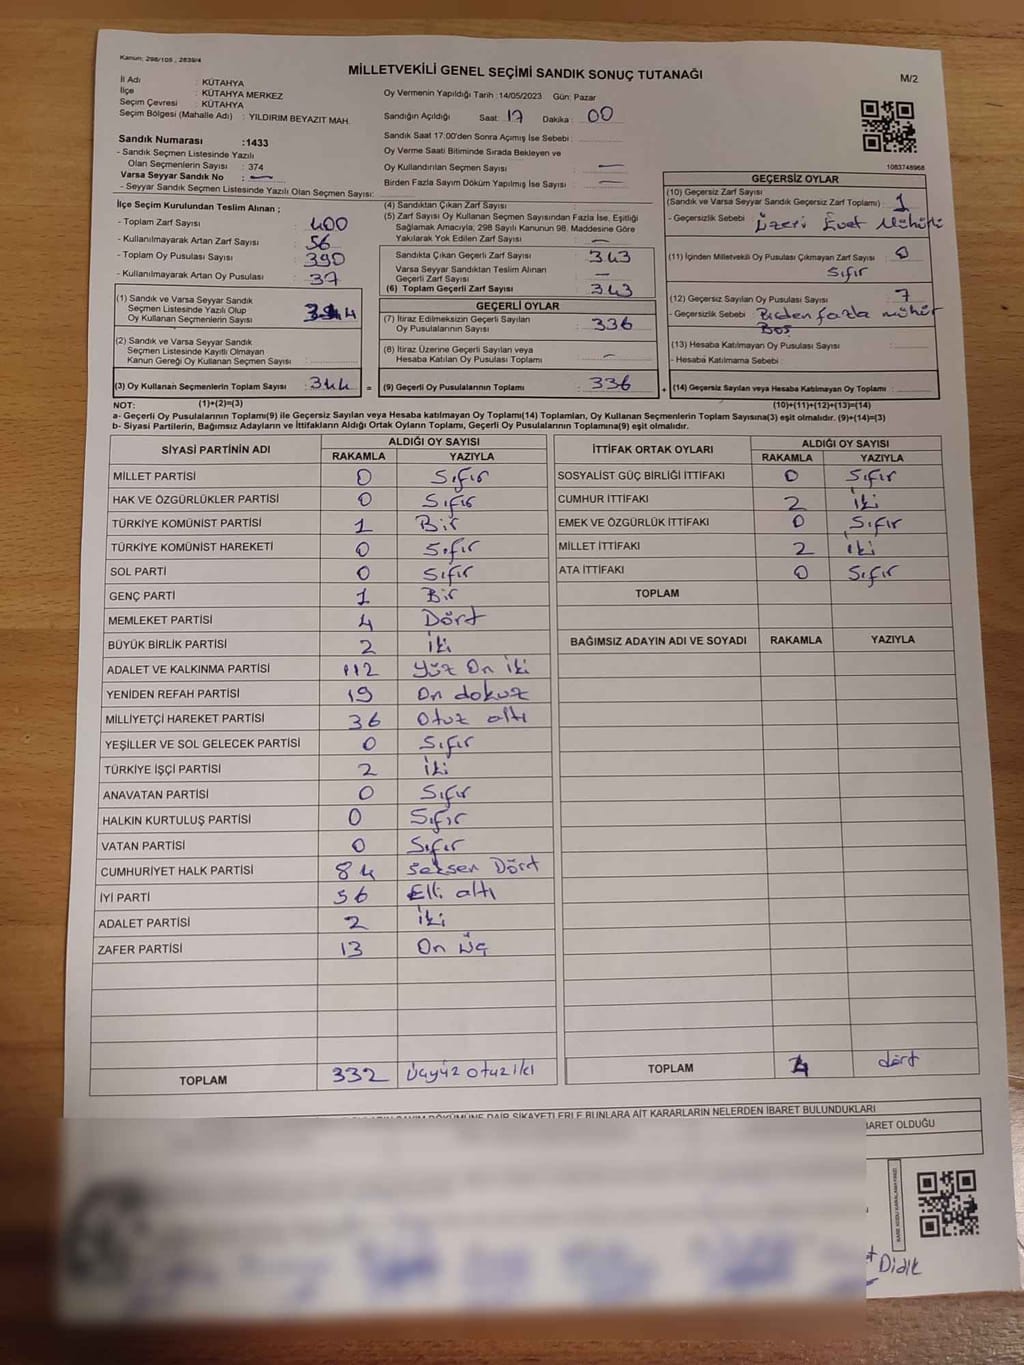 Kanun: 298/105 , 2839/4
MİLLETVEKİLİ GENEL SEÇİMİ SANDIK SONUÇ TUTANAĞI
M/2
İl Adı : KÜTAHYA
İlçe : KÜTAHYA MERKEZ
Seçim Çevresi : KÜTAHYA
Seçim Bölgesi (Mahalle Adı) : YILDIRIM BEYAZIT MAH.
Oy Vermenin Yapıldığı Tarih :14/05/2023 Gün: Pazar
Sandığın Açıldığı Saat: 17 Dakika : 00
Sandık Saat 17:00'den Sonra Açımış İse Sebebi :
Oy Verme Saati Bitiminde Sırada Bekleyen ve
Oy Kullandırılan Seçmen Sayısı : —
Birden Fazla Sayım Döküm Yapılmış İse Sayısı : —
1083748968
Sandık Numarası :1433
- Sandık Seçmen Listesinde Yazılı
Olan Seçmenlerin Sayısı : 374
Varsa Seyyar Sandık No : —
- Seyyar Sandık Seçmen Listesinde Yazılı Olan Seçmen Sayısı:
İlçe Seçim Kurulundan Teslim Alınan ;
- Toplam Zarf Sayısı : 400
- Kullanılmayarak Artan Zarf Sayısı : 56
- Toplam Oy Pusulası Sayısı : 390
- Kullanılmayarak Artan Oy Pusulası : 37
(1) Sandık ve Varsa Seyyar Sandık
Seçmen Listesinde Yazılı Olup
Oy Kullanan Seçmenlerin Sayısı :
(2) Sandık ve Varsa Seyyar Sandık
Seçmen Listesinde Kayıtlı Olmayan
Kanun Gereği Oy Kullanan Seçmen Sayısı :
(3) Oy Kullanan Seçmenlerin Toplam Sayısı : 344
(1)+(2)=(3)
=
(4) Sandıktan Çıkan Zarf Sayısı :
(5) Zarf Sayısı Oy Kullanan Seçmen Sayısından Fazla İse, Eşitliği
Sağlamak Amacıyla; 298 Sayılı Kanunun 98. Maddesine Göre
Yakılarak Yok Edilen Zarf Sayısı : —
Sandıkta Çıkan Geçerli Zarf Sayısı : 343
Varsa Seyyar Sandıktan Teslim Alınan
Geçerli Zarf Sayısı : —
(6) Toplam Geçerli Zarf Sayısı : 343
GEÇERLİ OYLAR
(7) İtiraz Edilmeksizin Geçerli Sayılan
Oy Pusulalarının Sayısı : 336
(8) İtiraz Üzerine Geçerli Sayılan veya
Hesaba Katılan Oy Pusulası Toplamı : —
(9) Geçerli Oy Pusulalarının Toplamı : 336
+
GEÇERSİZ OYLAR
(10) Geçersiz Zarf Sayısı
(Sandık ve Varsa Seyyar Sandık Geçersiz Zarf Toplamı) : 1
- Geçersizlik Sebebi : Üzeri Evet Mühürlü
(11) İçinden Milletvekili Oy Pusulası Çıkmayan Zarf Sayısı : 0
Sıfır
(12) Geçersiz Sayılan Oy Pusulası Sayısı : 7
- Geçersizlik Sebebi : Birden fazla mühür
Boş
(13) Hesaba Katılmayan Oy Pusulası Sayısı :
- Hesaba Katılmama Sebebi :
(14) Geçersiz Sayılan veya Hesaba Katılmayan Oy Toplamı :
(10)+(11)+(12)+(13)=(14)
NOT:
a- Geçerli Oy Pusulalarının Toplamı(9) ile Geçersiz Sayılan veya Hesaba katılmayan Oy Toplamı(14) Toplamları, Oy Kullanan Seçmenlerin Toplam Sayısına(3) eşit olmalıdır. (9)+(14)=(3)
b- Siyasi Partilerin, Bağımsız Adayların ve İttifakların Aldığı Ortak Oyların Toplamı, Geçerli Oy Pusulalarının Toplamına(9) eşit olmalıdır.
SİYASİ PARTİNİN ADI ALDIĞI OY SAYISI
RAKAMLA YAZIYLA
MİLLET PARTİSİ 0 Sıfır
HAK VE ÖZGÜRLÜKLER PARTİSİ 0 Sıfır
TÜRKİYE KOMÜNİST PARTİSİ 1 Bir
TÜRKİYE KOMÜNİST HAREKETİ 0 Sıfır
SOL PARTİ 0 Sıfır
GENÇ PARTİ 1 Bir
MEMLEKET PARTİSİ 4 Dört
BÜYÜK BİRLİK PARTİSİ 2 İki
ADALET VE KALKINMA PARTİSİ 112 Yüz On iki
YENİDEN REFAH PARTİSİ 19 On dokuz
MİLLİYETÇİ HAREKET PARTİSİ 36 Otuz altı
YEŞİLLER VE SOL GELECEK PARTİSİ 0 Sıfır
TÜRKİYE İŞÇİ PARTİSİ 2 İki
ANAVATAN PARTİSİ 0 Sıfır
HALKIN KURTULUŞ PARTİSİ 0 Sıfır
VATAN PARTİSİ 0 Sıfır
CUMHURİYET HALK PARTİSİ 84 Seksen Dört
İYİ PARTİ 56 Elli altı
ADALET PARTİSİ 2 İki
ZAFER PARTİSİ 13 On Üç
TOPLAM 332 Üçyüz otuz iki
İTTİFAK ORTAK OYLARI ALDIĞI OY SAYISI
RAKAMLA YAZIYLA
SOSYALİST GÜÇ BİRLİĞİ İTTİFAKI 0 Sıfır
CUMHUR İTTİFAKI 2 İki
EMEK VE ÖZGÜRLÜK İTTİFAKI 0 Sıfır
MİLLET İTTİFAKI 2 İki
ATA İTTİFAKI 0 Sıfır
TOPLAM
BAĞIMSIZ ADAYIN ADI VE SOYADI RAKAMLA YAZIYLA
TOPLAM 4 dört
DÖKÜMÜNE DAİR ŞİKAYETLERLE BUNLARA AİT KARARLARIN NELERDEN İBARET BULUNDUKLARI
BARET OLDUĞU